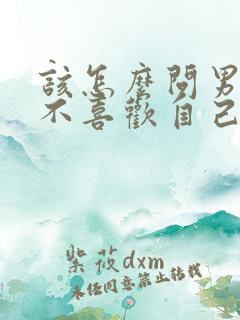 該怎麼問男
不喜歡自己
紫筱dxm
未经同意禁止转载